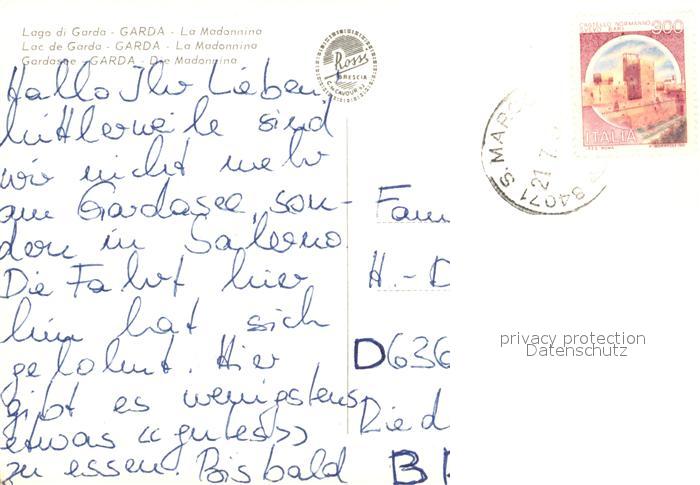 Lago di Garda - GARDA - La Madonnina
Lac de Garda - GARDA - La Madonnina
Gardasee - GARDA - Die Madonnina
Rossi
BRESCIA
CASTELLO NORMANNO
SVEVO BARI
300
ITALIA
84071 S. MARC
21.7
Hallo Ihr Lieben,
mittlerweile sind
wir nicht mehr
am Gardasee, son-
dern in Salerno.
Die Fahrt hier
hin hat sich
gelohnt. Hier
gibt es wenigstens
etwas «gutes»
zu essen. Bis bald
Fam
H.-D
D636
Ried
privacy protection
Datenschutz